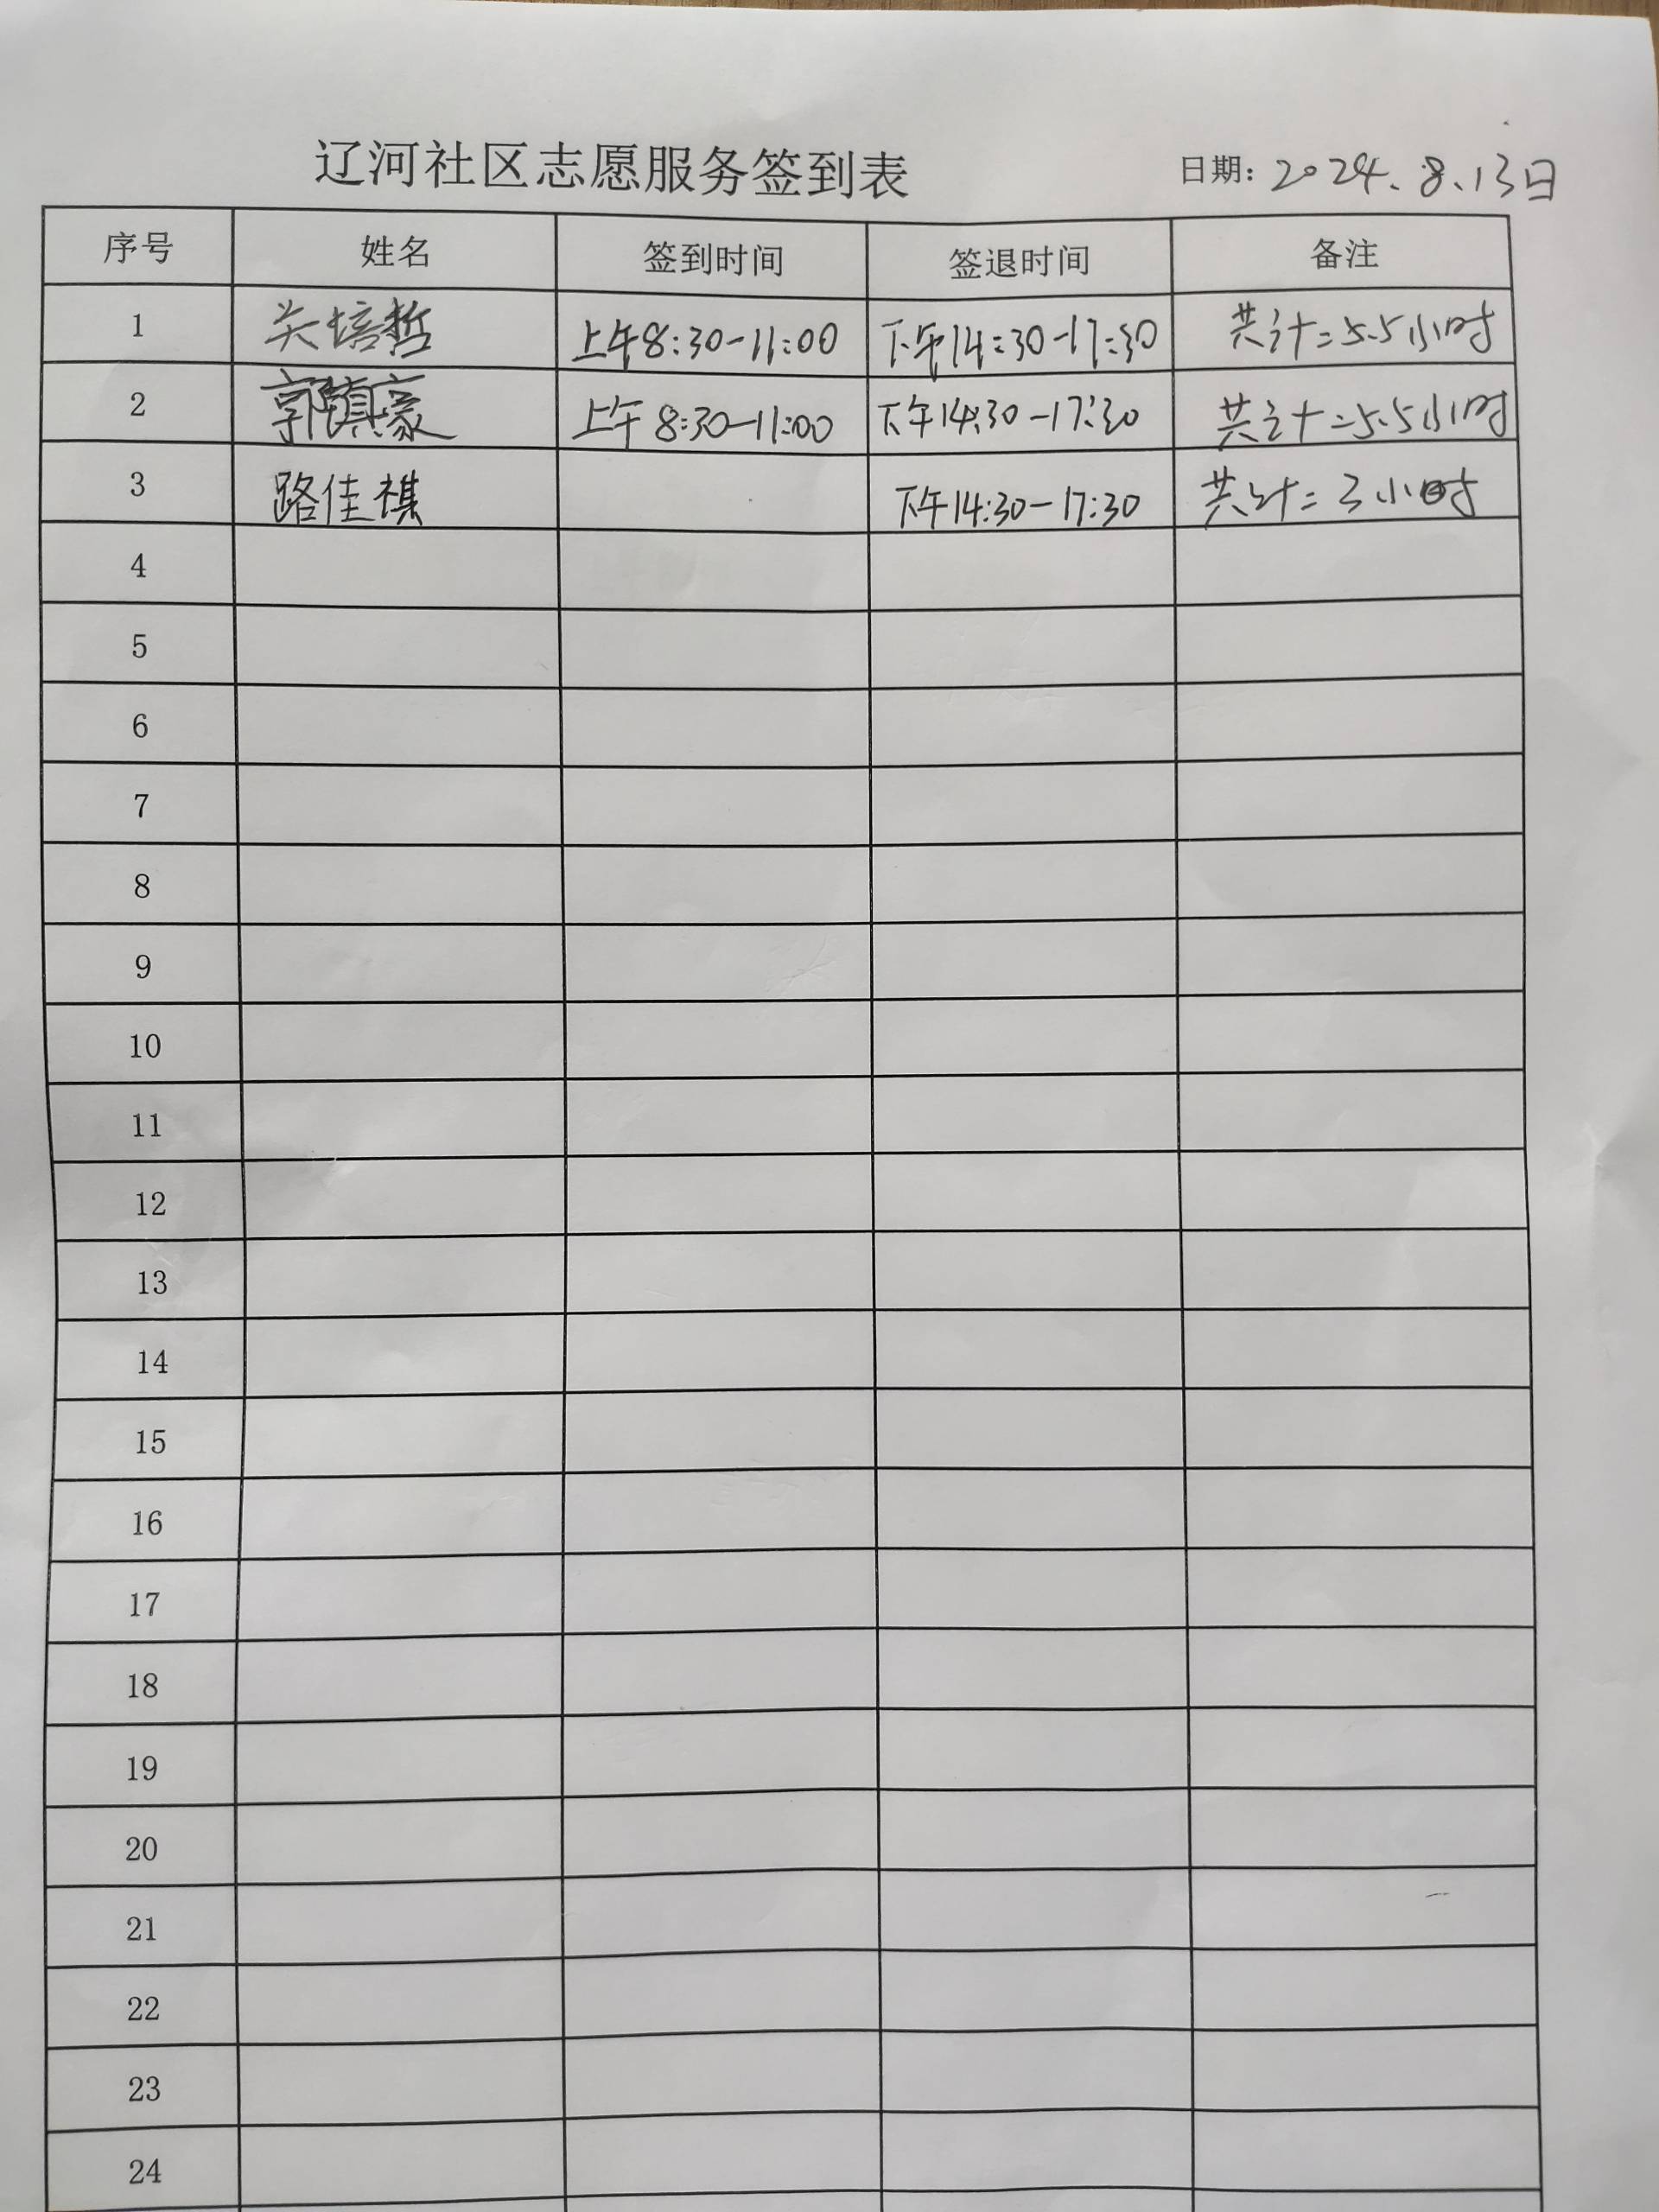 辽河社区志愿服务签到表 日期: 2024.8.13日
序号 姓名 签到时间 签退时间 备注
1 关培哲 上午8:30-11:00 下午14:30-17:30 共计=5.5小时
2 郭镇豪 上午8:30-11:00 下午14:30-17:30 共计=5.5小时
3 路佳祺 下午14:30-17:30 共计=3小时
4
5
6
7
8
9
10
11
12
13
14
15
16
17
18
19
20
21
22
23
24